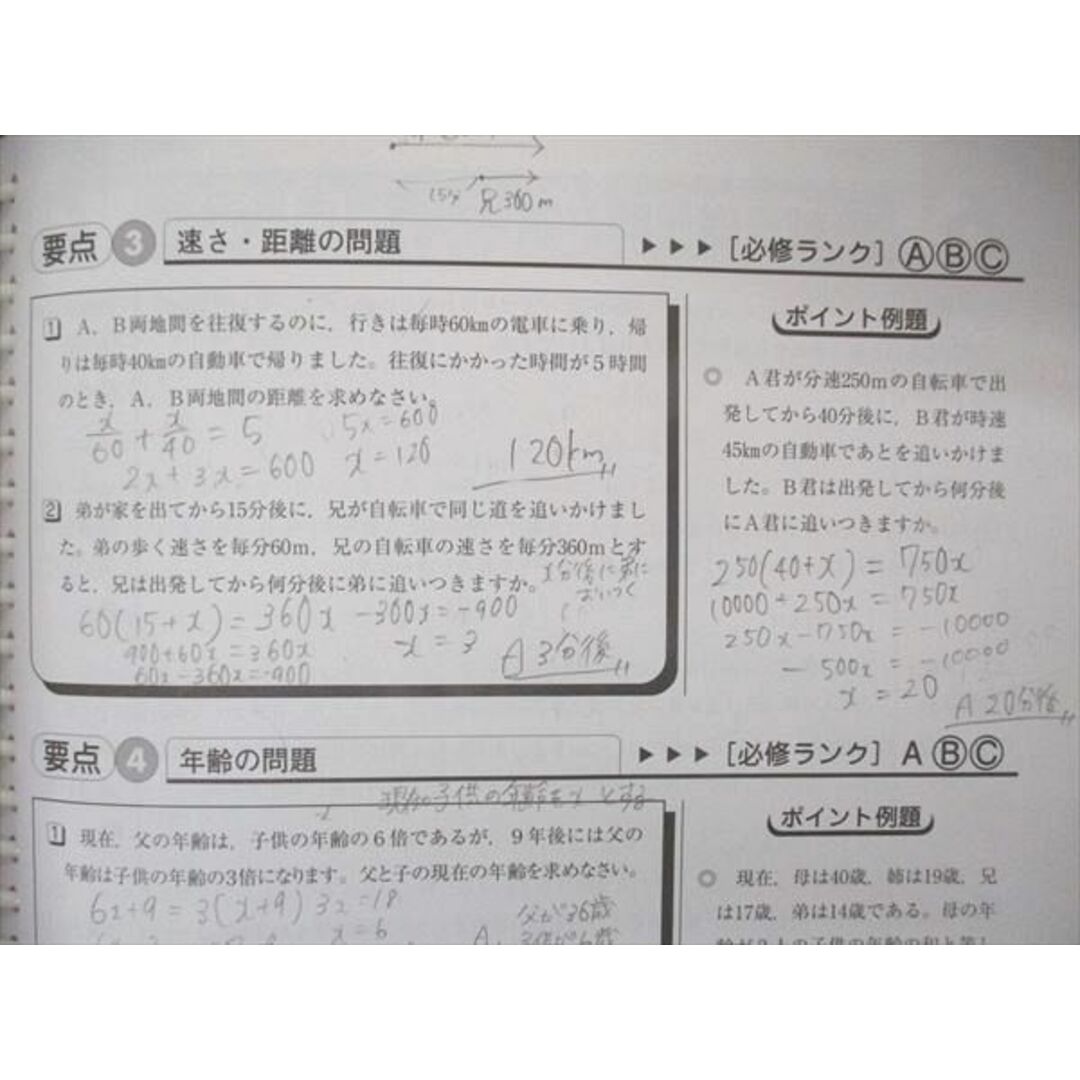 15分 兄360m
要点 3 速さ・距離の問題 ▶▶▶ [必修ランク] Ⓐ Ⓑ Ⓒ
1 A，B両地間を往復するのに，行きは毎時60kmの電車に乗り，帰
りは毎時40kmの自動車で帰りました。往復にかかった時間が５時間
のとき，A，B両地間の距離を求めなさい。
x/60 + x/40 = 5
2x + 3x = 600
5x = 600
x = 120
120km
2 弟が家を出てから15分後に，兄が自転車で同じ道を追いかけまし
た。弟の歩く速さを毎分60m，兄の自転車の速さを毎分360mとす
ると，兄は出発してから何分後に弟に追いつきますか。
x分後に弟に
おいつく
60(15+x) = 360x
900+60x = 360x
60x-360x=-900
-300x=-900
x = 3
A 3分後
ポイント例題
◎ A君が分速250mの自転車で出
発してから40分後に，B君が時速
45kmの自動車であとを追いかけま
した。B君は出発してから何分後
にA君に追いつきますか。
250(40+x) = 750x
10000+250x = 750x
250x-750x = -10000
-500x = -10000
x = 20
A 20分後
要点 4 年齢の問題 ▶▶▶ [必修ランク] A Ⓑ Ⓒ
現在の子供の年齢をxとする
1 現在，父の年齢は，子供の年齢の６倍であるが，９年後には父の
年齢は子供の年齢の3倍になります。父と子の現在の年齢を求めなさい。
6x+9 = 3(x+9)
3x=18
x=6
父が36歳
A. 子供が6歳
ポイント例題
◎ 現在，母は40歳，姉は19歳，兄
は17歳，弟は14歳である。母の年